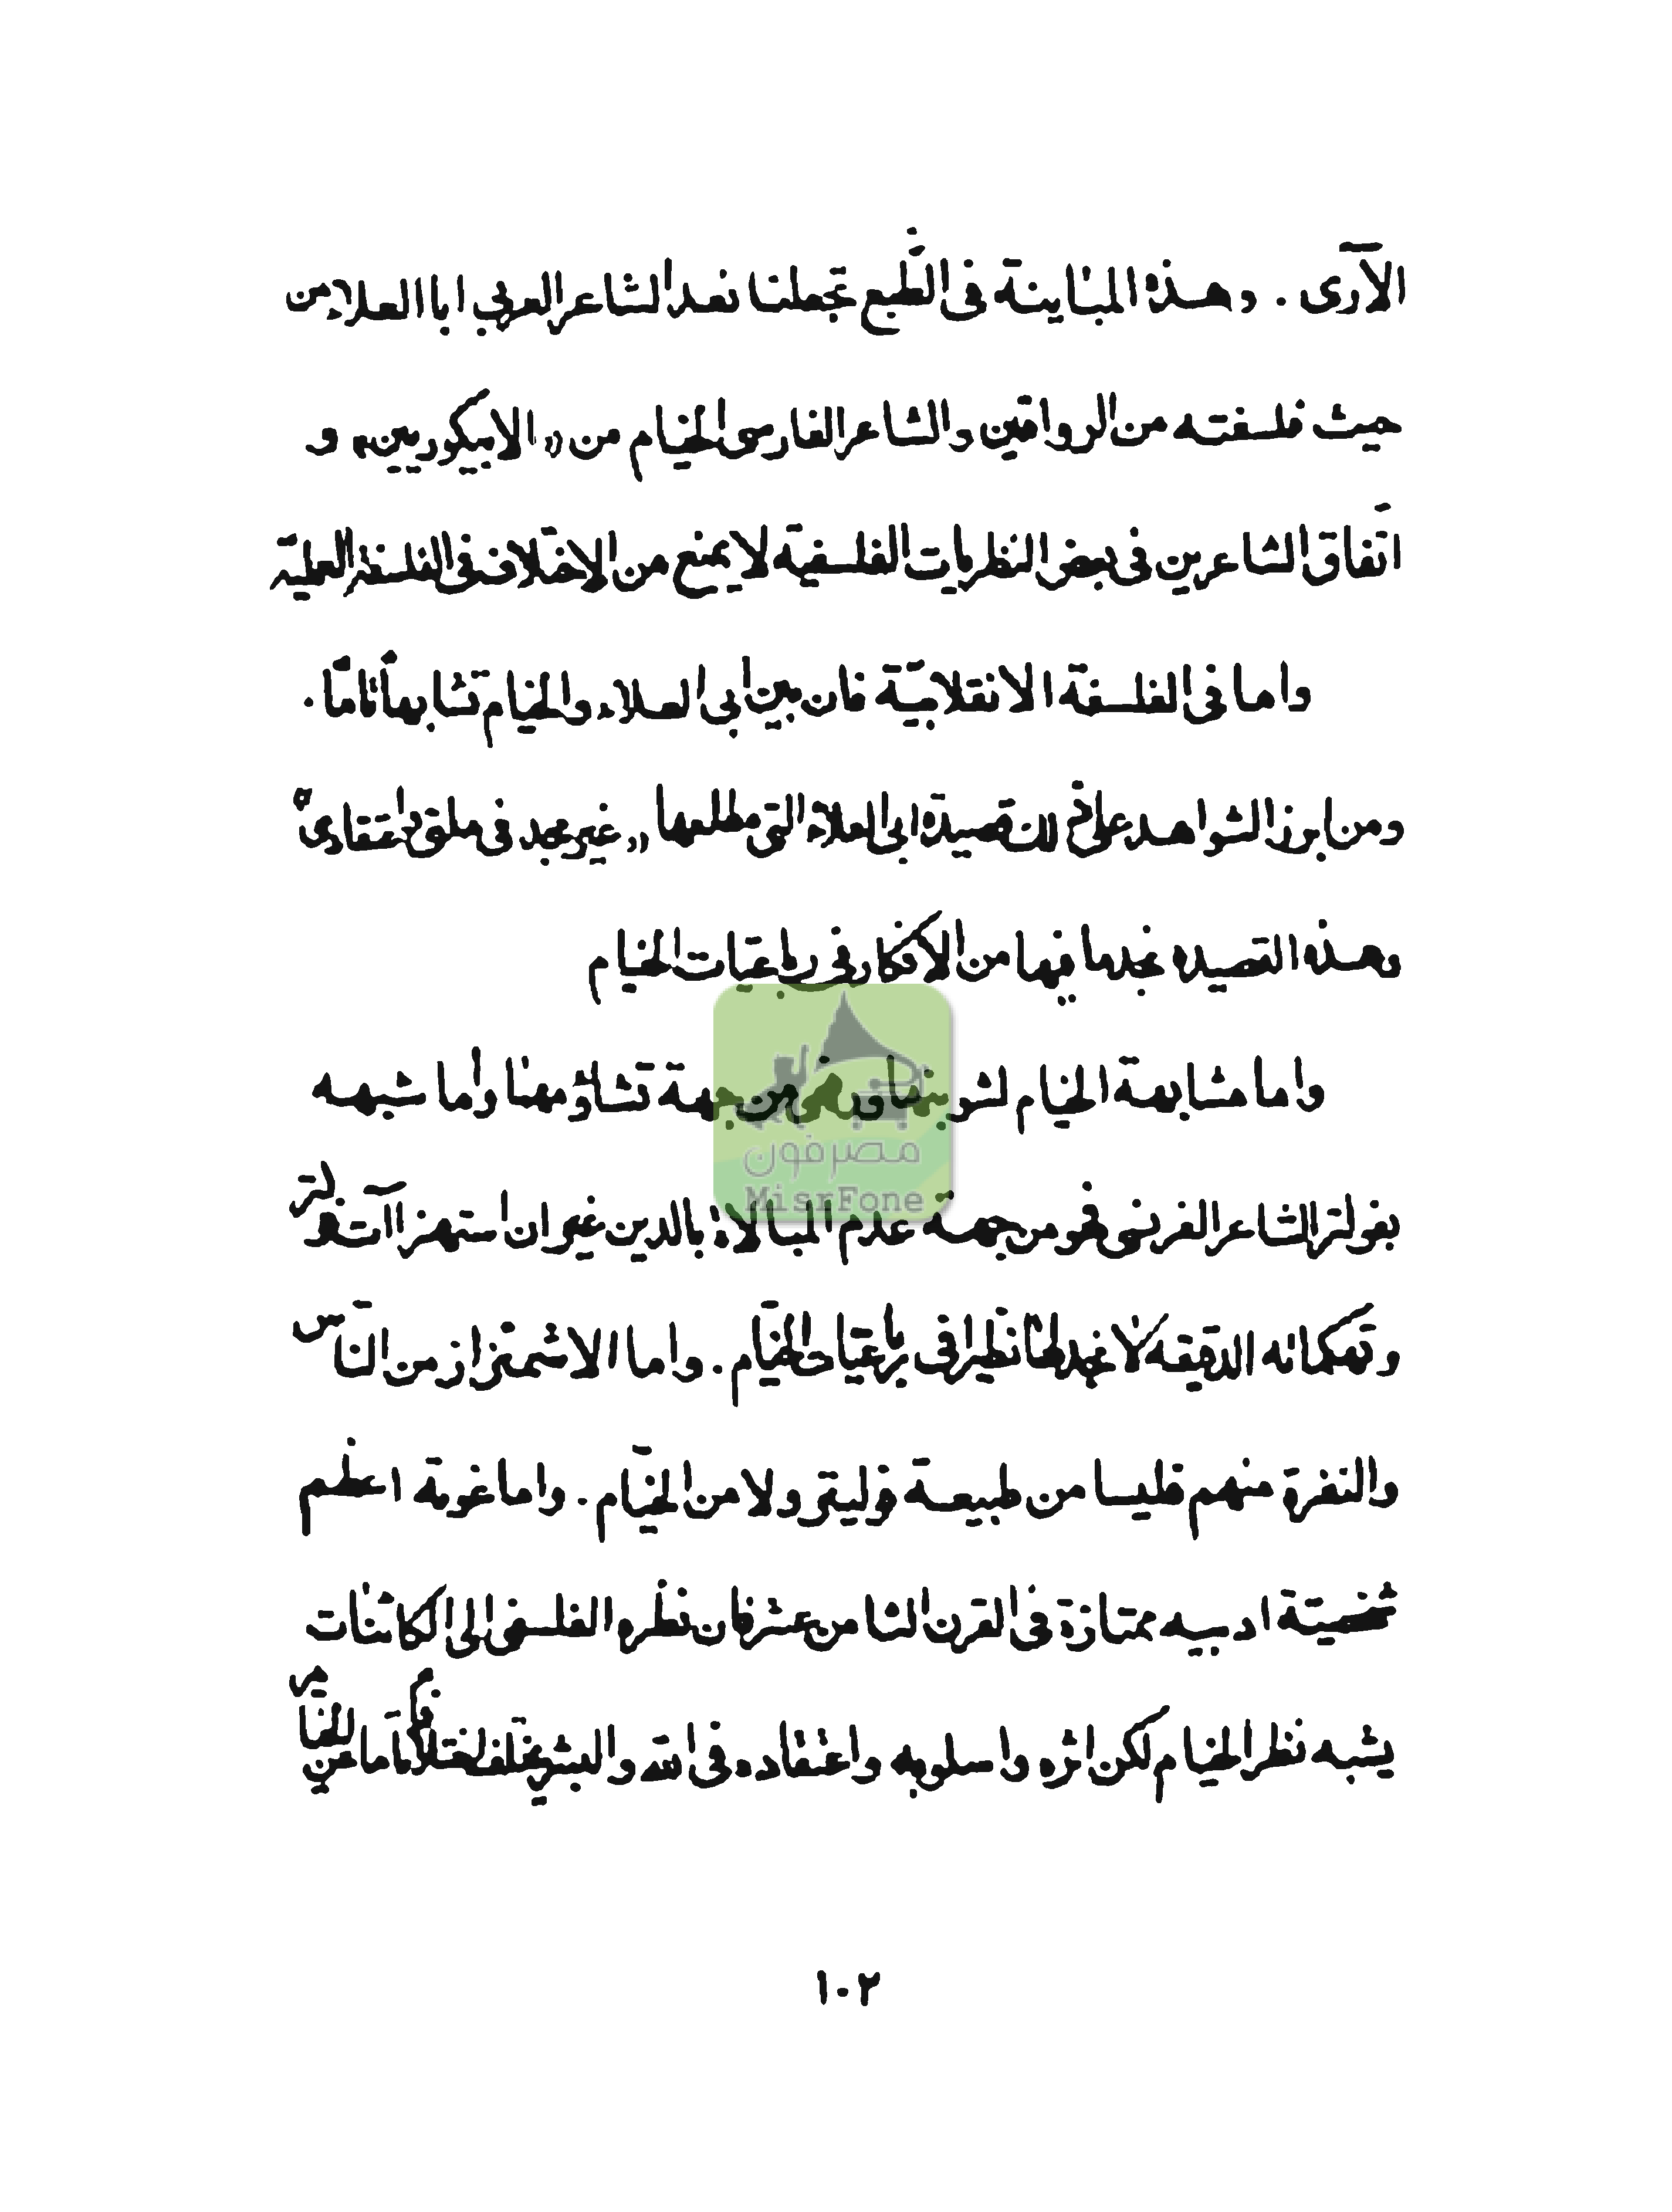 الآرى . وهذه المباينة فى الطّبع تجعلنا نعد الشاعر العربي ابا العلاء من
حيث فلسفته من الرواقين والشاعر الفارسى الخيام من «الابيكوريين» و
اتّفاق الشاعرين فى بعض النظريات الفلسفيه لا يمنع من الاختلاف فى الفلسفه العمليّه
واما فى الفلسفة الانقلابيّة فان بين ابى العلاء والخيام تشابهاً تامّا .
ومن ابرز الشواهد على قصيدة ابى العلاء التى مطلعها « غير مجد فى ملتى واعتقادى »
وهذه القصيده نجد ما فيها من الافكار فى رباعيات الخيام
واما مشابهة الخيام لشوبنهاور فهى من جهة تشاؤمهما وأما شبهه
بفولتر الشاعر الفرنسى فهو من جهة عدم المبالاة بالدين غير ان استهزاآت فولتر
وتهكماته الدقيقه لا نجد لها نظيرا فى رباعيّات الخيّام . واما الاشمئزاز من النّاس
والنفرة منهم فليسا من طبيعة فوليتر ولا من الخيّام . واما غوته اعظم
شخصيّة ادبيه ممتازة فى القرن الثامن عشر فان نظره الفلسفى الى الكائنات
يشبه نظر الخيام لكن اثره واسلوبه واعتقاده فى الله والبشر يختلف اختلافا تاما عن الخيّام
مصرفون
MisrFone
١٠٢